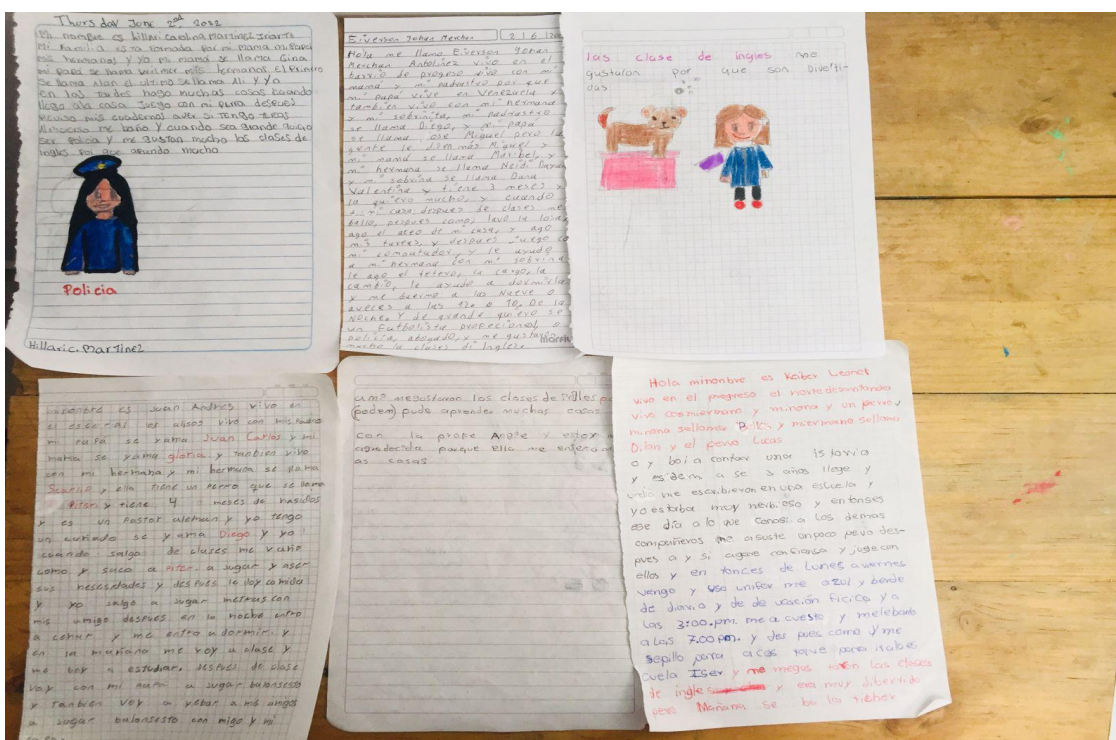 Thursday June 2nd 2022
Mi nombre es Hillari carolina martinez Iriarte
Mi familia esta formada por mi mamá mi papá
mis hermanos y yo mi mamá se llama Gina
mi papá se llama wilmer mis hermanos El primero
se llama Alan el ultimo se llama Ali y yo
en las tardes hago muchas cosas cuando
llego ala casa juego con mi perra despues
reviso mis cuadernos aver si tengo tareas
Almuerzo me baño y cuando sea grande quiero
ser policia y me gustan mucho las clases de
ingles por que aprendo mucho
Policia
Hillari c. Martinez
Eiverson Johan Merchan 2 6 20
Hola me llamo Eiverson Johan
Merchan Antolinez vivo en el
barrio de progreso vivo con mi
mama y mi padrastro por que
mi papá vive en Venezuela y
tambien vivo con mi hermana
y mi sobrinita, mi padrastro
se llama Diego, y mi papá
se llama Jose Miguel pero la
gente le dicen más Miguel y
mi mamá se llama Maribel, y
mi hermana se llama Neidi
y mi sobrina se llama Dana
Valentina y tiene 3 meses y
la quiero mucho, y cuando
mi casa despues de clases me
baño, despues como, lavo la losa,
ago el aseo de mi casa, y ago
mis tareas, y despues Juego co
mi computador, y le ayudo
a mi hermana con mi sobrina
le ago el tetero, la cargo, la
cambio, le ayudo a dormirla
y me duermo a las Nueve o
aveces a las 12. o 10. De la
Noche. Y de grande quiero se
un Futbolista profecional, o
policia, abogado, y me gustaron
mucho la clases di Ingles.
las clase de ingles me
gustaron por que son Diverti-
das
nombre es Juan Andres vivo en
el escorial es alisos vivo con mis padres
mi papá se yama Juan Carlos y mi
mama se yama gloria y tanbien vivo
con mi hermana y mi hermana se yama
y ella tiene un perro que se llama
Piter y tiene 4 meses de nasidos
y es un Pastor aleman y yo tengo
un cuñado se yama Diego y yo
cuando salgo de clases me vaño
como y saco a Piter a jugar y aser
sus nesesidades y despues le doy comida
y yo salgo a jugar metras con
mis amigo despues en la noche entro
a cenar y me entro a dormir y
en la mañana me voy a clase y
me boy a estudiar, despues de clase
voy con mi papá a jugar balonsesto
y tanbien voy a yebar a mis amigos
a jugar balonsesto con migo y mi
ami megustaron las clases de ingles po
(podem) pude aprender muchas cosas
con la profe Angie y estoy a
gradecida porque ella me enseño m
as cosas
Hola minonbre es Keiber Leonel
vivo en el progreso el norte desantander
vivo cosmiermano y minona y un perro,
minona sellama Belkis y miermano sellama
Dilan y el perro Lucas
o y boi a contar una istoria
y es de mi a se 3 años llege y
undia me escribieron en una escuela y
yo estaba muy nerbioso y entonses
ese día a lo que conosi a los demas
compañeros me asuste un poco pero des-
pues a y si agare confiansa y juge con
ellos y en tonces de Lunes a viernes
vengo y uso unifor me azul y berde
de diario y de de ucación ficica y a
las 3:00.pm. me a cuesto y melebanto
a las 7.00 pm. y des pues como y me
sepillo para
cuela y me megus taron las clases
de ingles y era muy dibertido
pero Mañana se ba la ticher